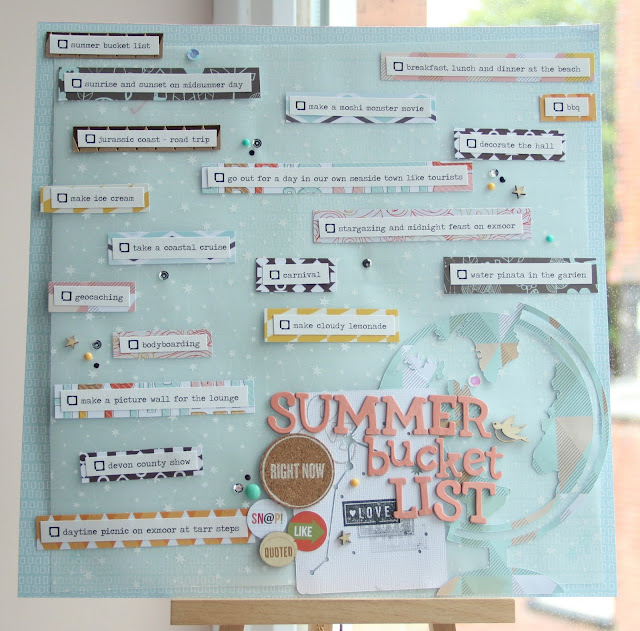 summer bucket list
sunrise and sunset on midsummer day
breakfast, lunch and dinner at the beach
make a moshi monster movie
bbq
jurassic coast - road trip
decorate the hall
go out for a day in our own seaside town like tourists
make ice cream
stargazing and midnight feast on exmoor
take a coastal cruise
carnival
water pinata in the garden
geocaching
make cloudy lemonade
bodyboarding
make a picture wall for the lounge
SUMMER
bucket
LIST
devon county show
RIGHT NOW
SN@P!
LIKE
LOVE
daytime picnic on exmoor at tarr steps
QUOTED